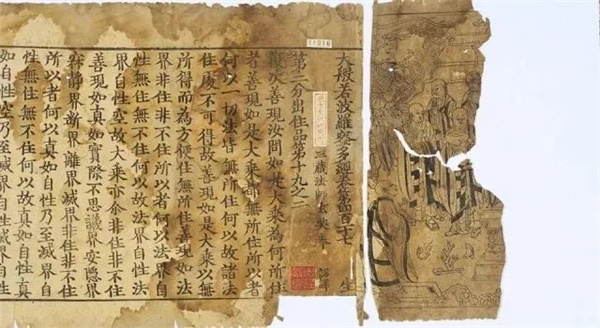 大般若波羅蜜多經卷第四百一十七 生
第二分出住品第十九之二
三藏法師玄奘奉 詔譯
復次善現汝問如是大乘為何所住
者善現如是大乘都無所住所以者
何以一切法皆無所住何以故諸法
住處不可得故善現如是大乘以無
所得而為方便住無所住善現如法
界非住非不住所以者何以法界自
性無住無不住何以故法界自性法
界自性空故大乘亦尒非住非不住
善現如真如實際不思議界安隱界
寂靜界斷界離界滅界非住非不住
所以者何以真如自性乃至滅界自
性無住無不住何以故真如自性真
如自性空乃至滅界自性滅界自性